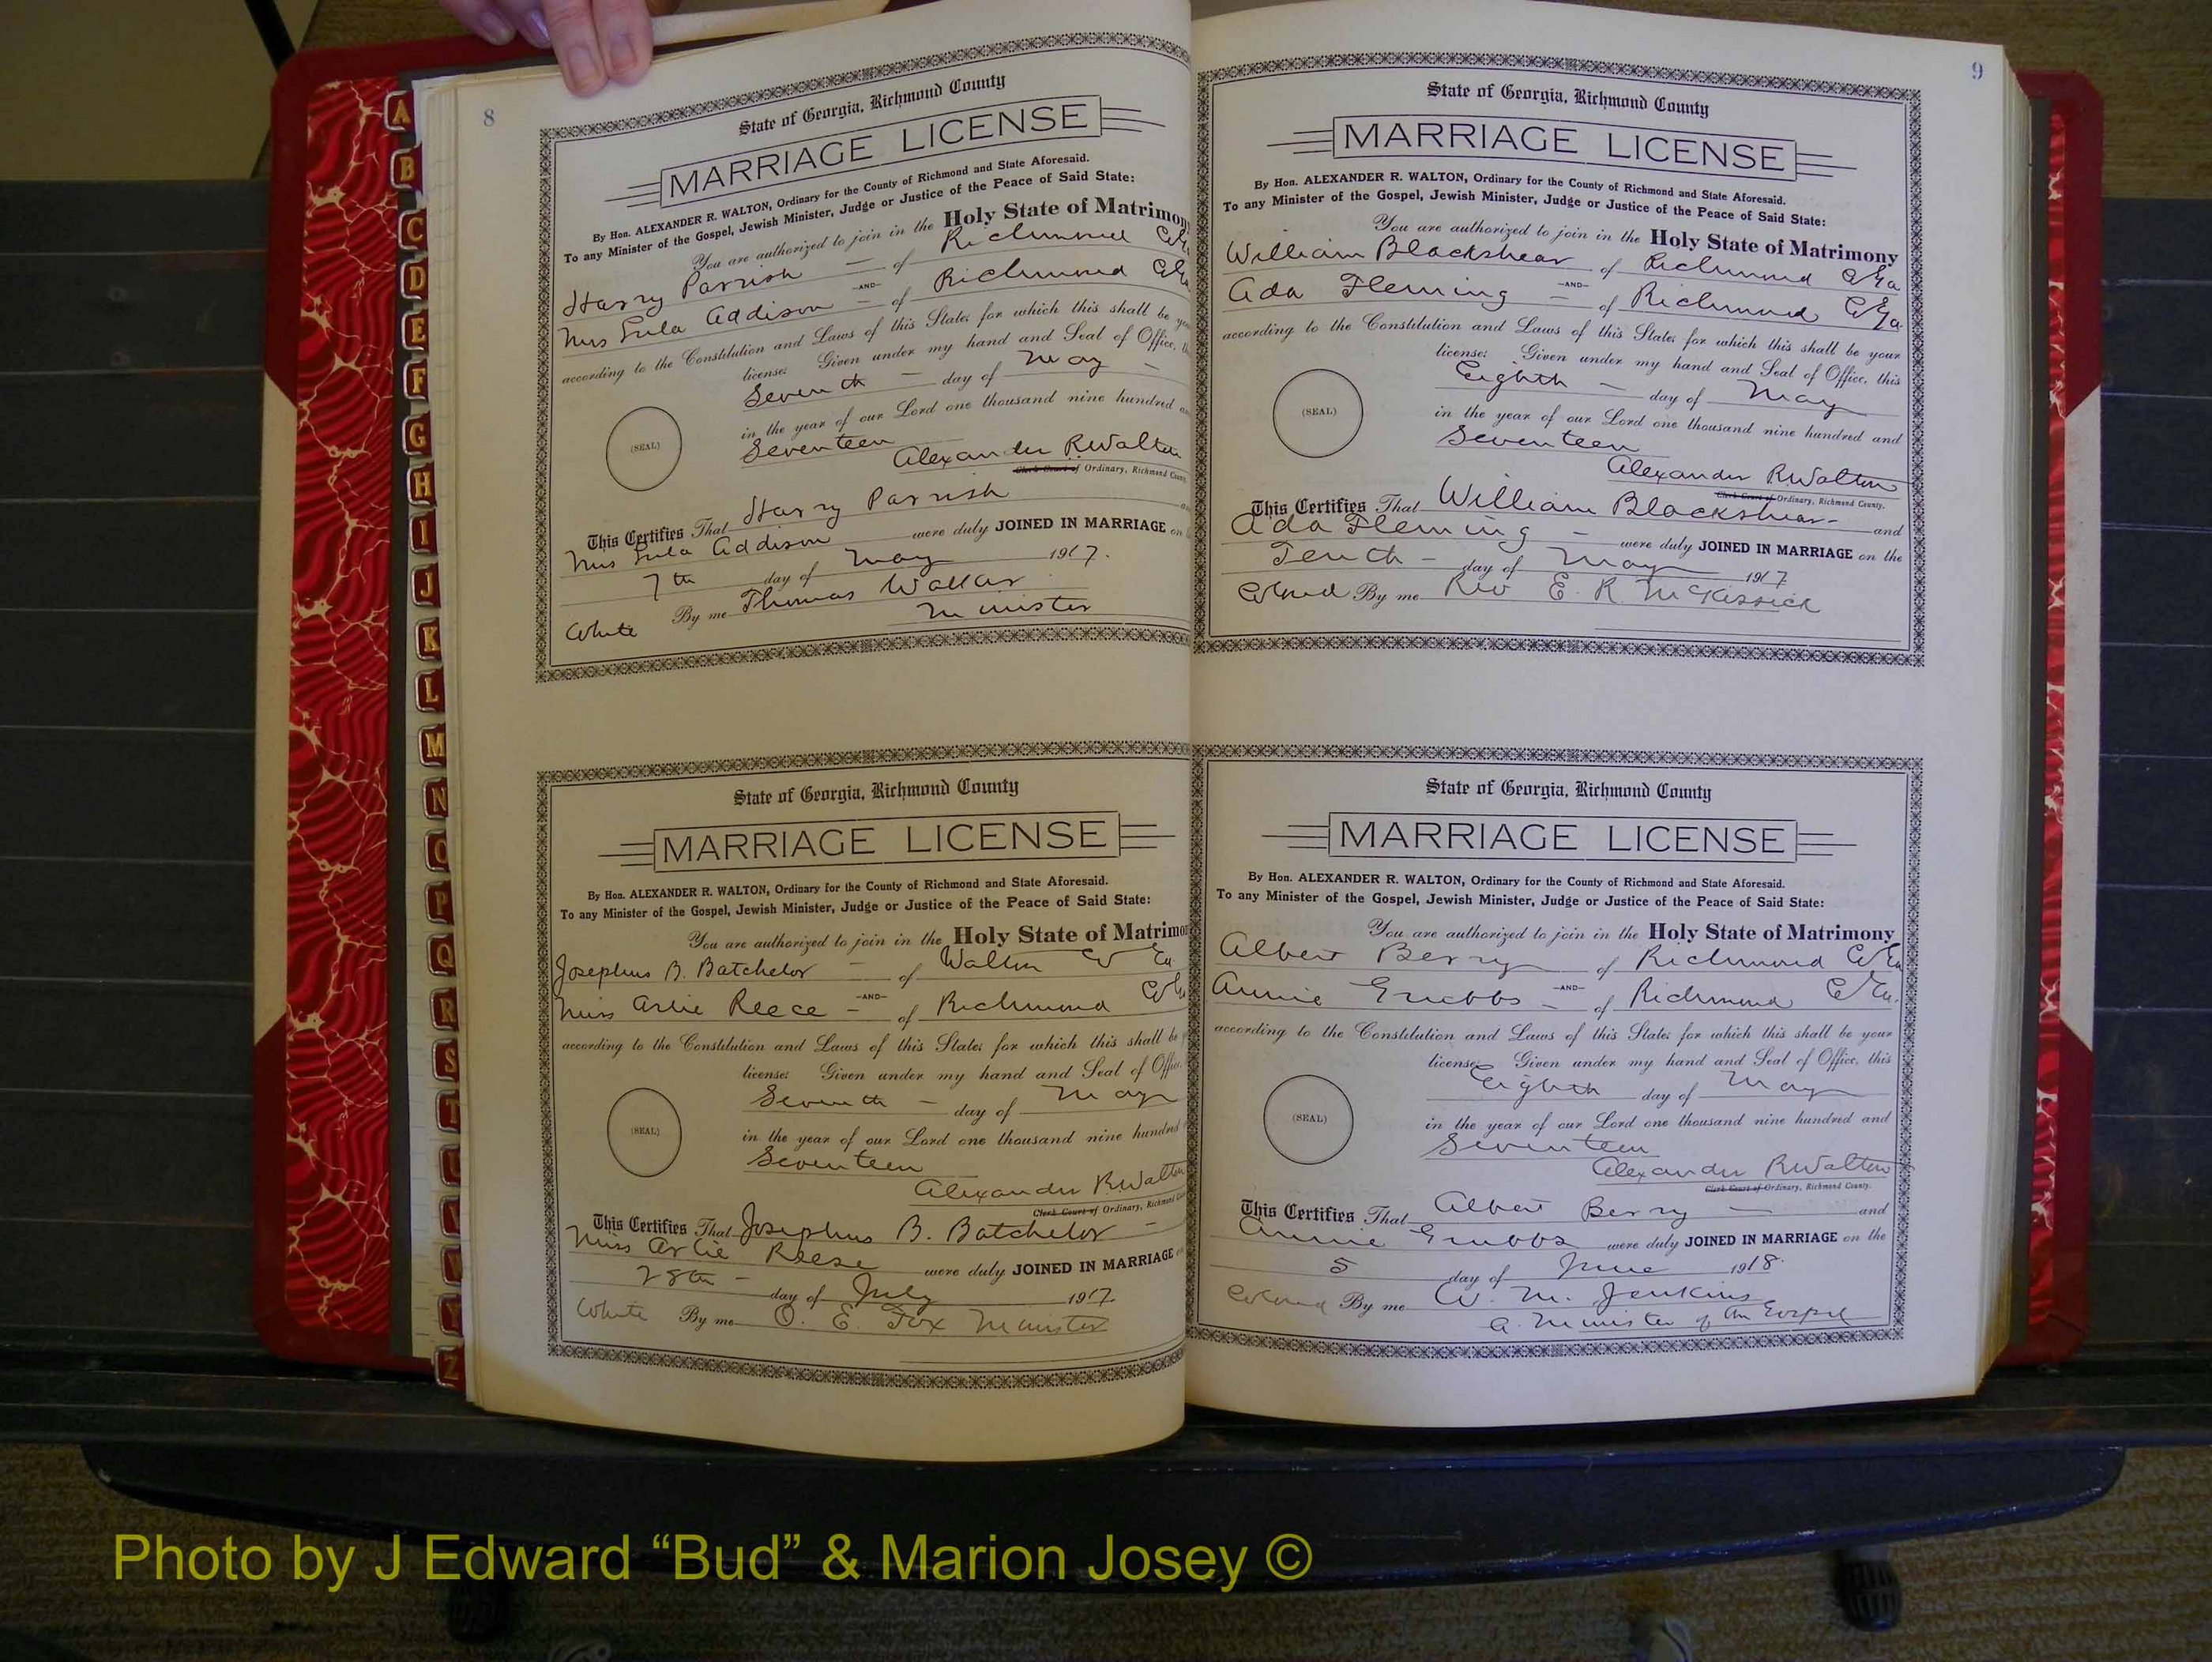 A
B
C
D
E
F
G
H
I
J
K
L
M
N
O
P
Q
R
S
T
U
V
W
Y
Z
8
State of Georgia, Richmond County
MARRIAGE LICENSE
By Hon. ALEXANDER R. WALTON, Ordinary for the County of Richmond and State Aforesaid.
To any Minister of the Gospel, Jewish Minister, Judge or Justice of the Peace of Said State:
You are authorized to join in the Holy State of Matrimony
Harry Parrish — of Richmond Co
—AND—
Miss Eula Addison — of Richmond Co
according to the Constitution and Laws of this State; for which this shall be
license: Given under my hand and Seal of Office,
Seventh — day of May —
(SEAL)
in the year of our Lord one thousand nine hundred
Seventeen
Alexander R Walton
Clerk Court of Ordinary, Richmond County
This Certifies That Harry Parrish
Miss Eula Addison were duly JOINED IN MARRIAGE on
7th day of May 1917.
White By me Thomas Walker
Minister
State of Georgia, Richmond County
MARRIAGE LICENSE
By Hon. ALEXANDER R. WALTON, Ordinary for the County of Richmond and State Aforesaid.
To any Minister of the Gospel, Jewish Minister, Judge or Justice of the Peace of Said State:
You are authorized to join in the Holy State of Matrimo
Josephus B. Batchelor — of Walton Co Ga
—AND—
Miss Arlie Reece — of Richmond Co Ga
according to the Constitution and Laws of this State; for which this shall be
license: Given under my hand and Seal of Office
Seventh — day of May
(SEAL)
in the year of our Lord one thousand nine hundred
Seventeen
Alexander R Walton
Clerk Court of Ordinary, Richmond
This Certifies That Josephus B. Batchelor —
Miss Arlie Reese were duly JOINED IN MARRIAGE
28th — day of July 1917.
White By me O. E. Fox Minister
9
State of Georgia, Richmond County
MARRIAGE LICENSE
By Hon. ALEXANDER R. WALTON, Ordinary for the County of Richmond and State Aforesaid.
To any Minister of the Gospel, Jewish Minister, Judge or Justice of the Peace of Said State:
You are authorized to join in the Holy State of Matrimony
William Blackshear of Richmond C Ga
—AND—
Ada Fleming — of Richmond C Ga
according to the Constitution and Laws of this State; for which this shall be your
license: Given under my hand and Seal of Office, this
Eighth — day of May
(SEAL)
in the year of our Lord one thousand nine hundred and
Seventeen
Alexander R Walton
Clerk Court of Ordinary, Richmond County.
This Certifies That William Blackshear- and
Ada Fleming — were duly JOINED IN MARRIAGE on the
Tenth — day of May 1917
Colored By me Rev E. R. McKissick
State of Georgia, Richmond County
MARRIAGE LICENSE
By Hon. ALEXANDER R. WALTON, Ordinary for the County of Richmond and State Aforesaid.
To any Minister of the Gospel, Jewish Minister, Judge or Justice of the Peace of Said State:
You are authorized to join in the Holy State of Matrimony
Albert Berry of Richmond Co Ga
—AND—
Annie Grubbs — of Richmond C Ga.
according to the Constitution and Laws of this State; for which this shall be your
license: Given under my hand and Seal of Office, this
Eighth day of May
(SEAL)
in the year of our Lord one thousand nine hundred and
Seventeen
Alexander R Walton
Clerk Court of Ordinary, Richmond County.
This Certifies That Albert Berry — and
Annie Grubbs were duly JOINED IN MARRIAGE on the
5 day of June 1918.
Colored By me W. M. Jenkins
A. Minister of the Gospel
Photo by J Edward “Bud” & Marion Josey ©